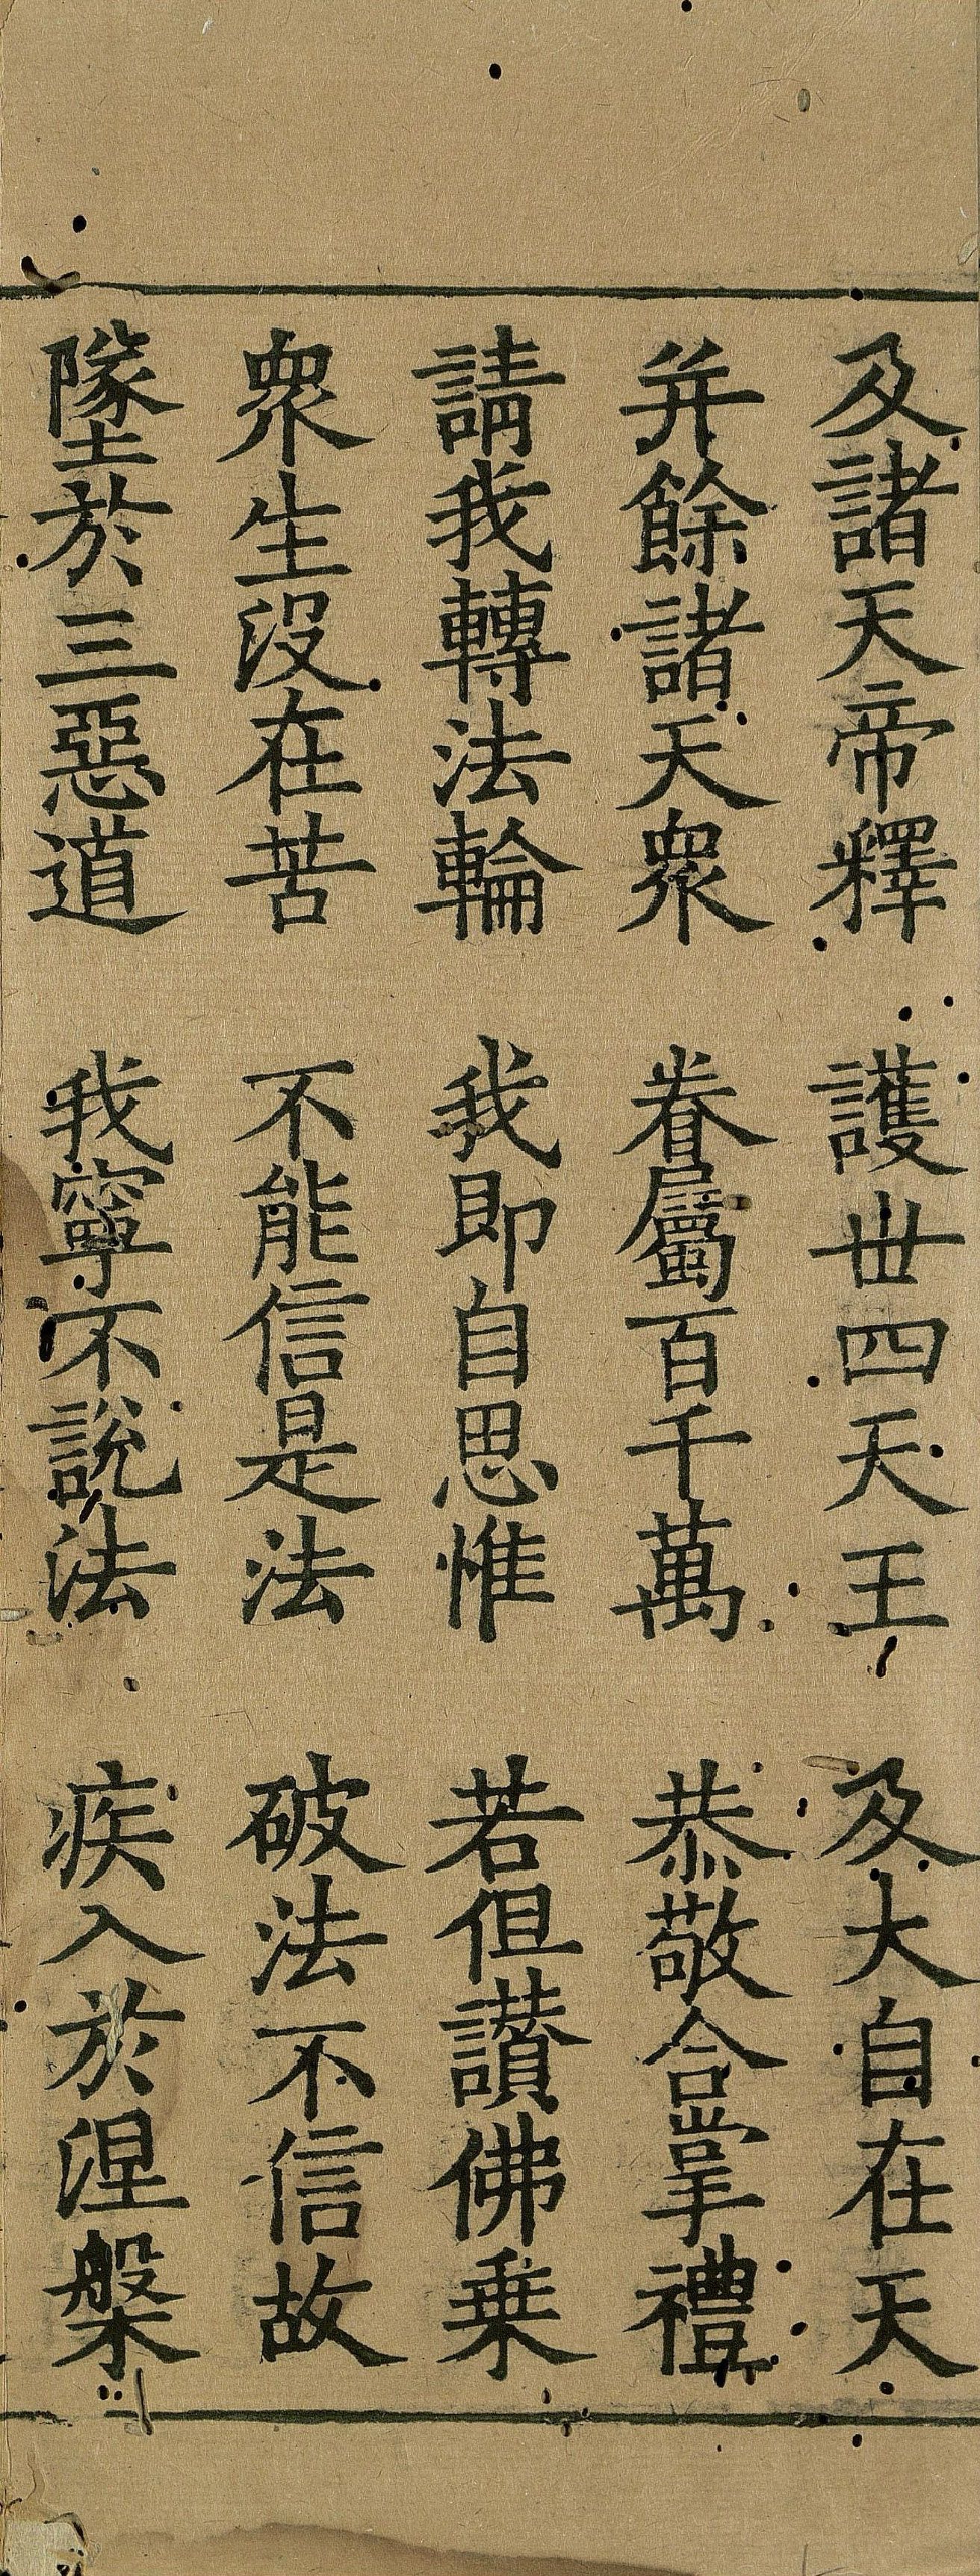 及諸天帝釋　護丗四天王　及大自在天
并餘諸天衆　眷屬百千萬　恭敬合掌禮
請我轉法輪　我即自思惟　若但讃佛乗
衆生没在苦　不能信是法　破法不信故
墜於三惡道　我寧不說法　疾入於涅槃